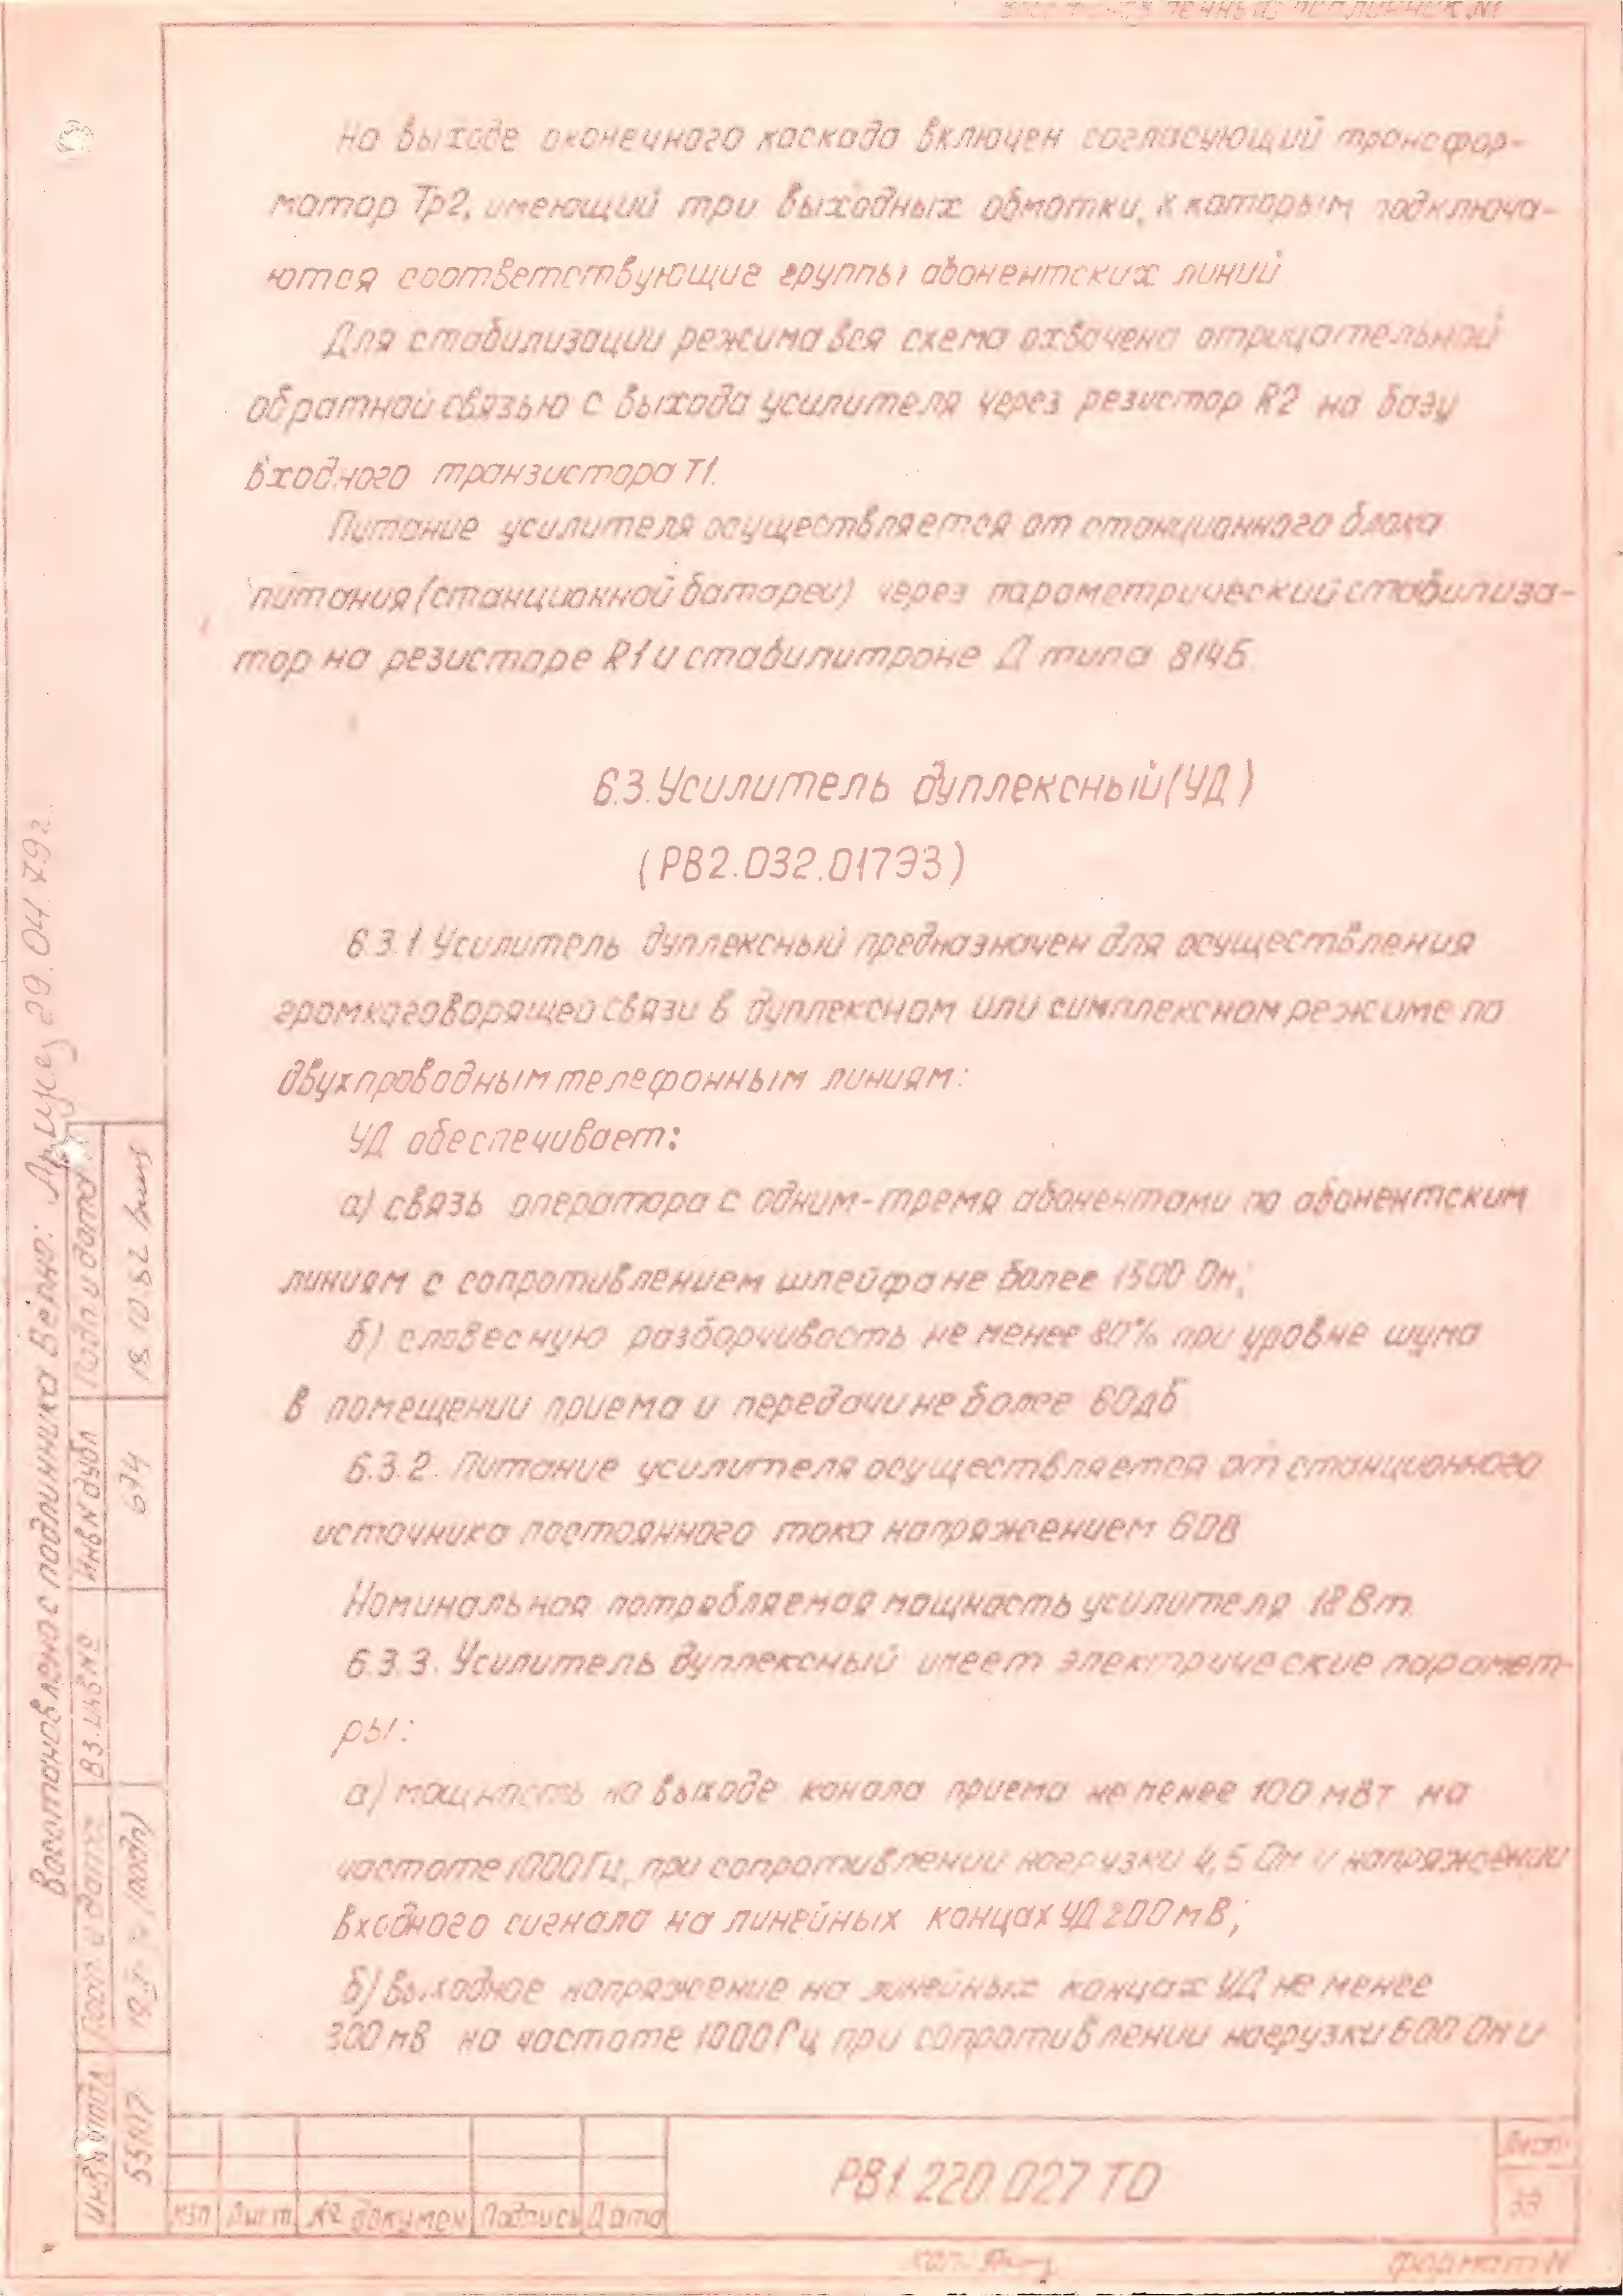 На выходе оконечного каскада включен согласующий трансфор-
матор Тр2, имеющий три выходных обмотки, к которым подключа-
ются соответствующие группы абонентских линий
Для стабилизации режима вся схема охвачена отрицательной
обратной связью с выхода усилителя через резистор R2 на базу
входного транзистора Т1.
Питание усилителя осуществляется от станционного блока
питания (станционной батареи) через параметрический стабилиза-
тор на резисторе R1 и стабилитроне Д типа 814Б.
6.3. Усилитель дуплексный (УД)
(РВ2.032.017ЭЗ)
6.3.1 Усилитель дуплексный предназначен для осуществления
громкоговорящей связи в дуплексном или симплексном режиме по
двухпроводным телефонным линиям:
УД обеспечивает:
а) связь оператора с одним-тремя абонентами по абонентским
линиям с сопротивлением шлейфа не более 1500 Ом;
б) словесную разборчивость не менее 80% при уровне шума
в помещении приема и передачи не более 60дб
6.3.2. Питание усилителя осуществляется от станционного
источника постоянного тока напряжением 60В
Номинальная потребляемая мощность усилителя 18 Вт.
6.3.3. Усилитель дуплексный имеет электрические парамет-
ры:
а) мощность на выходе канала приема не менее 100 мВт на
частоте 1000Гц, при сопротивлении нагрузки 4,5 Ом и напряжении
входного сигнала на линейных концах УД 200мВ;
б) выходное напряжение на линейных концах УД не менее
300мВ на частоте 1000Гц при сопротивлении нагрузки 600 Ом и
Востановлено с подлинника Верно: 29.04.79г.
Подп и дата
18.10.82
Инв№дубл
674
Вз.инв№
Подп и дата
(подп)
Инв№подл
55117
изп Лист № докумен Подпись Дата
РВ1.220.027 ТО
Лист
33
коп.
формат11